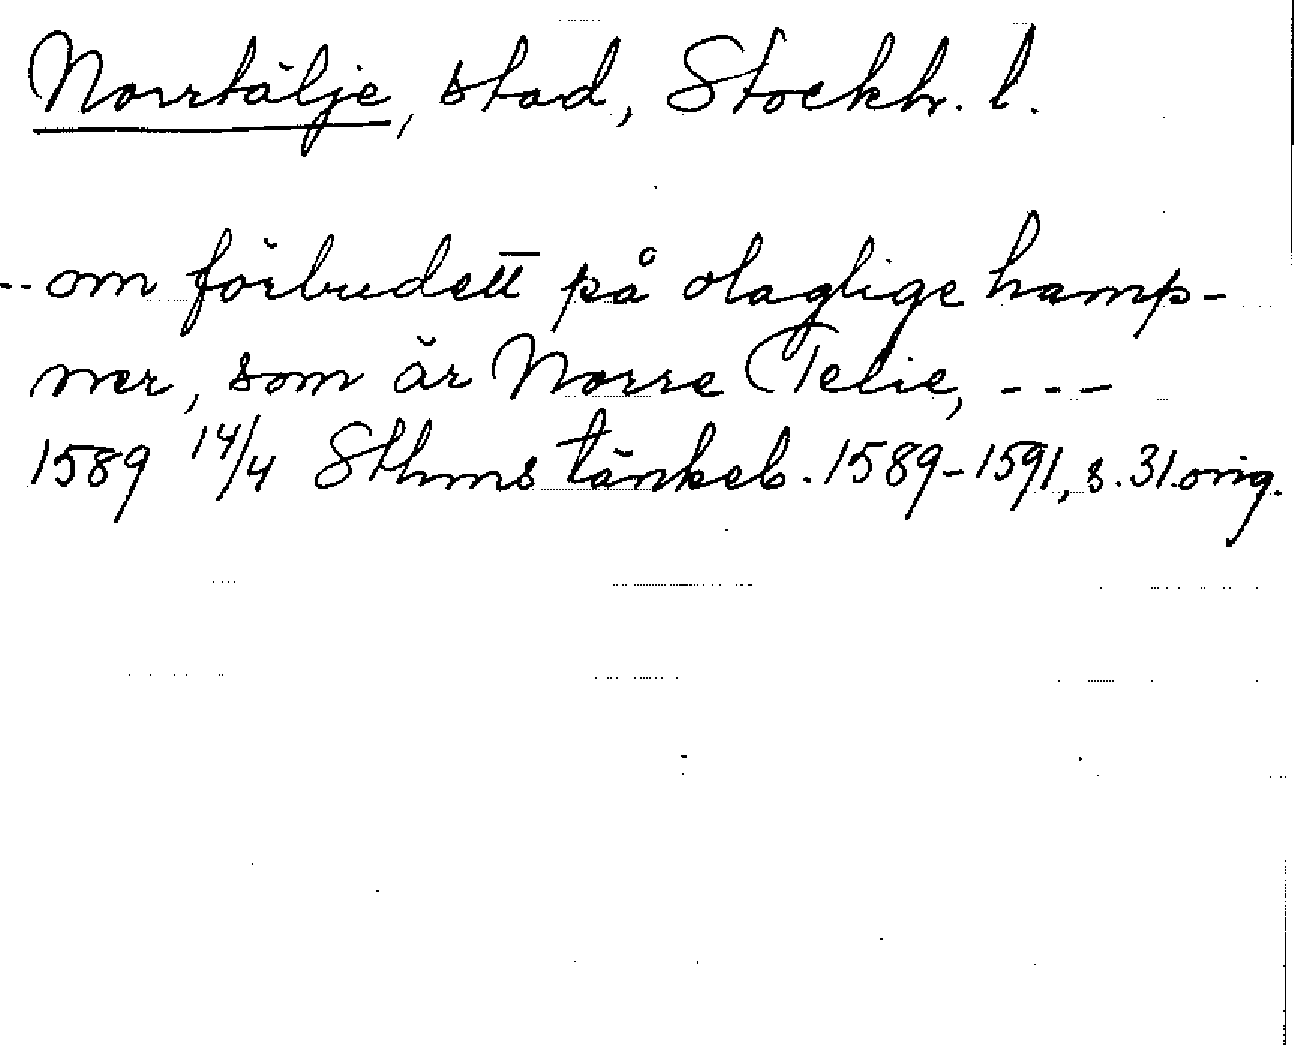 Norrtälje, stad, Stockh. l.
--om förbudett på olaglige hamp-
ner, som är Norre Telie, ---
1589 14/4 Sthms tänkeb. 1589-1591, s. 31 orig.